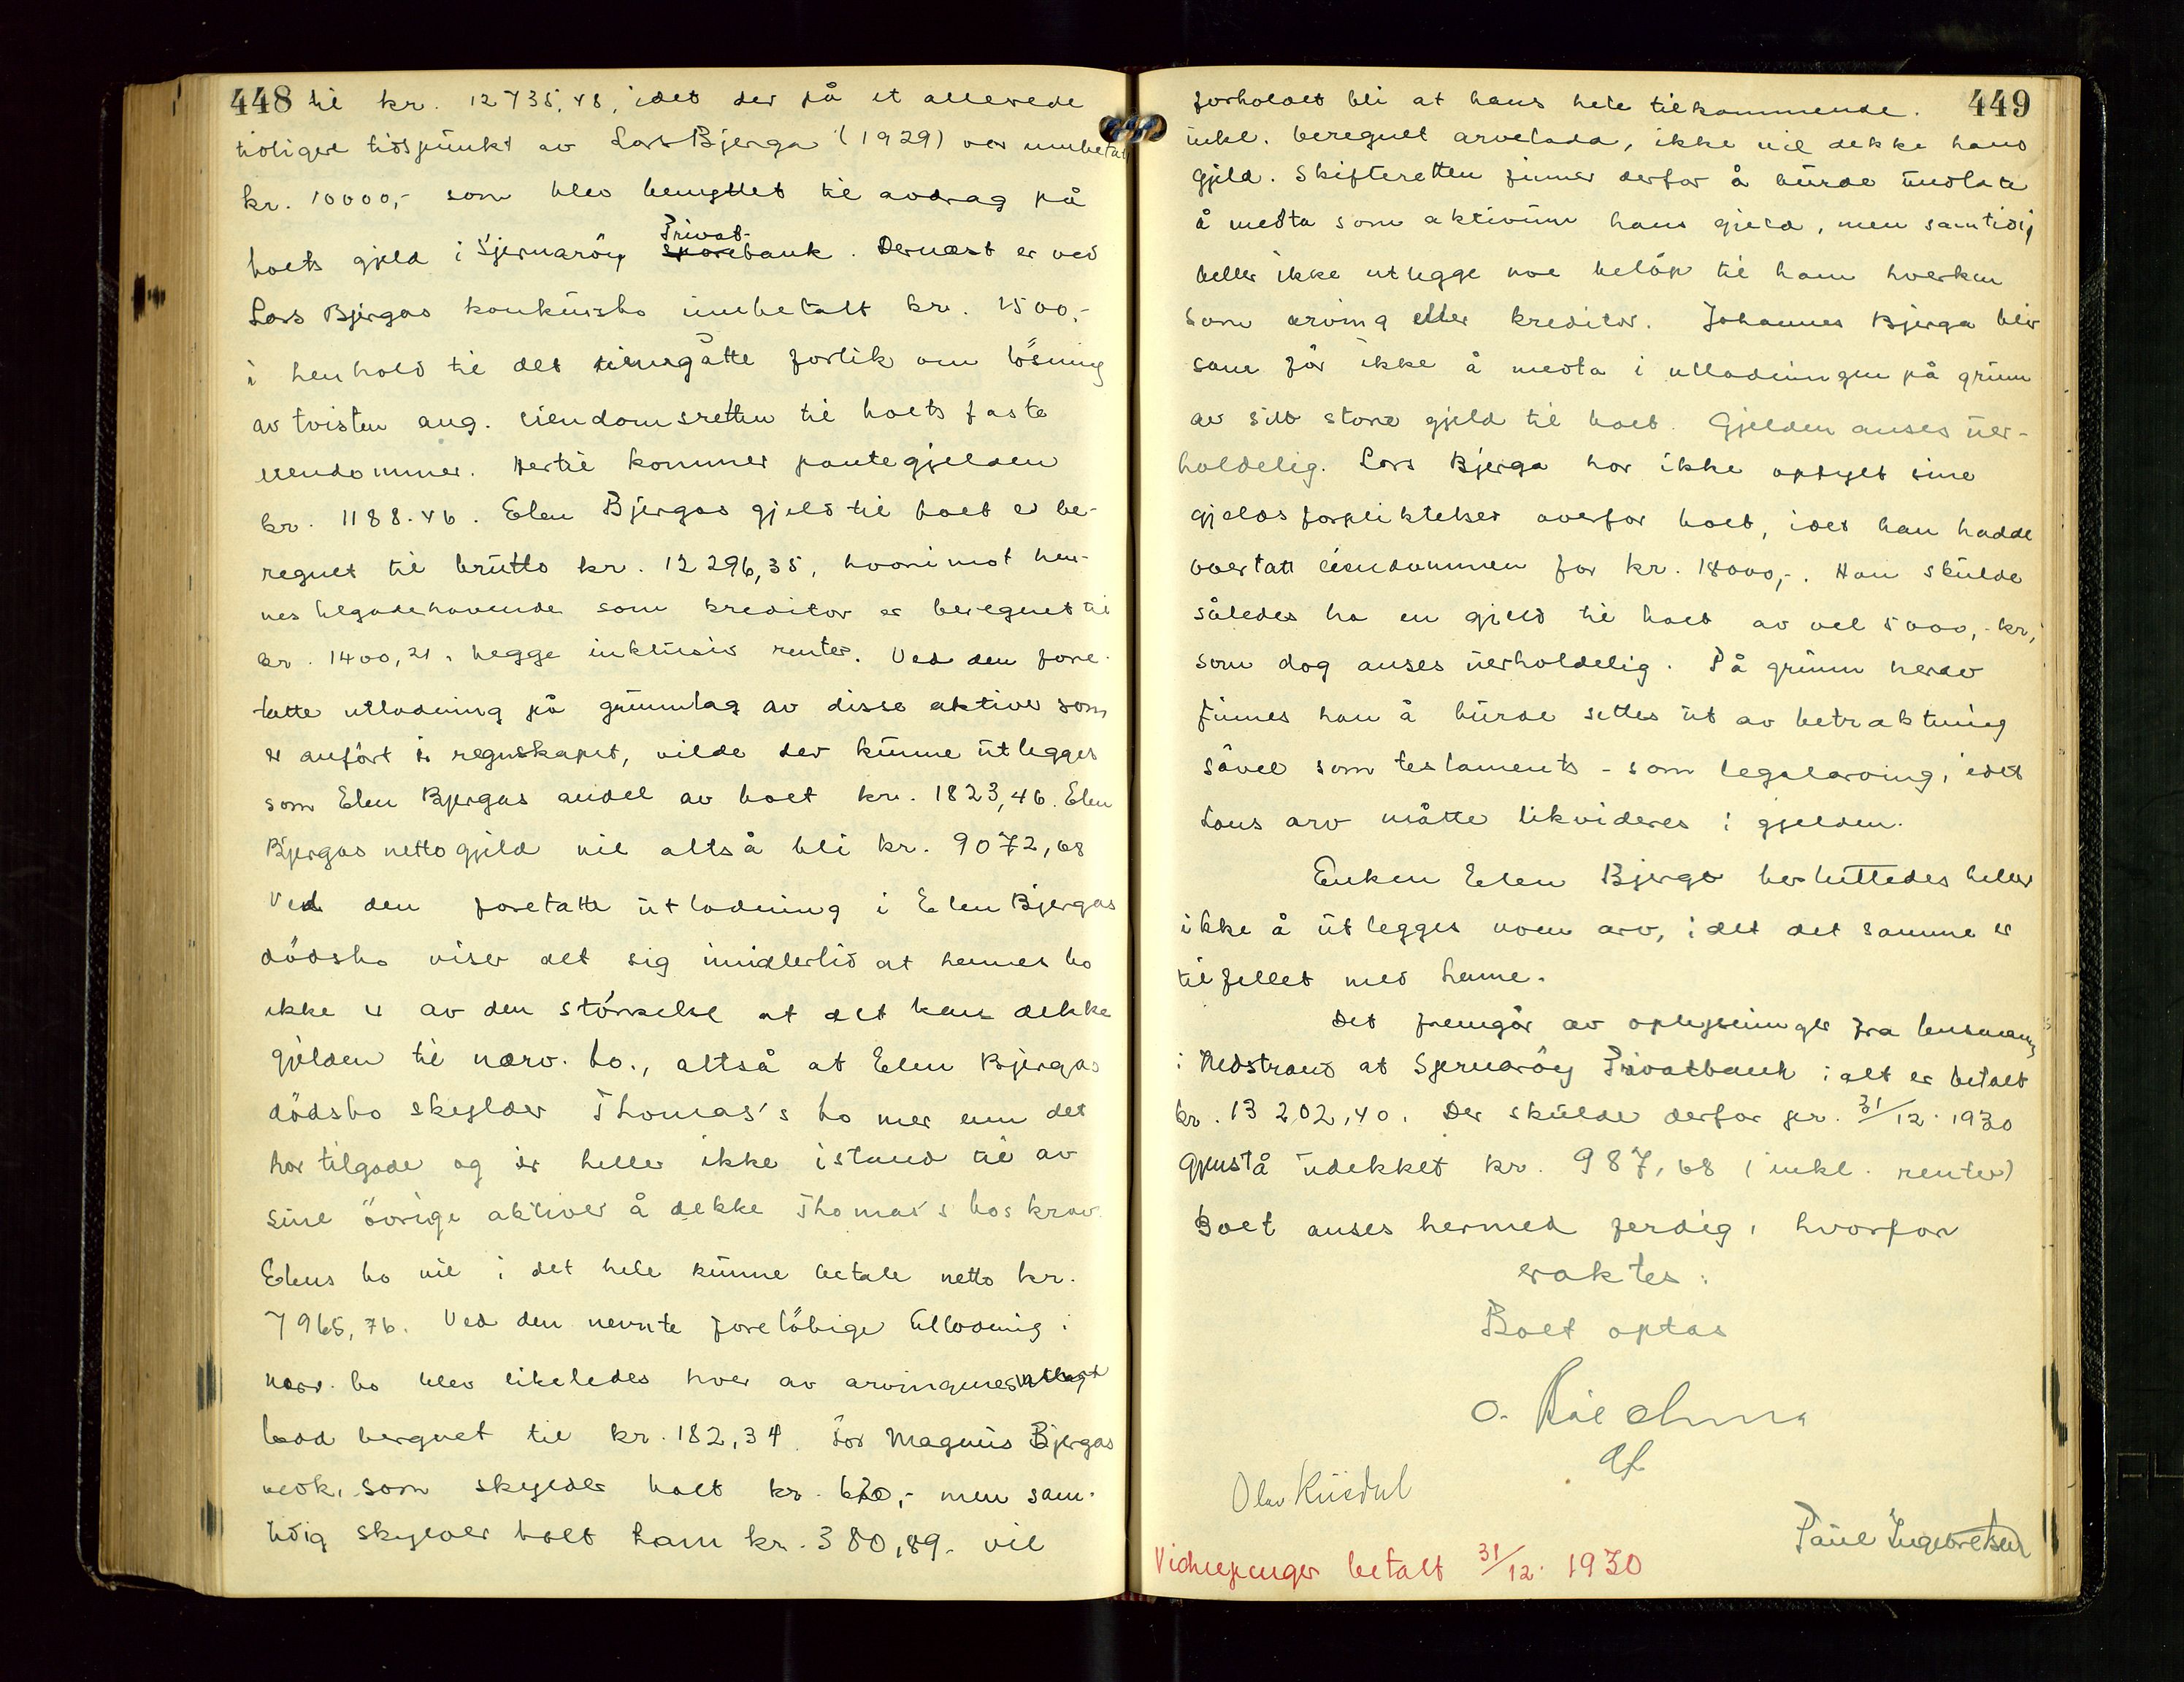 448 til kr. 12735,48, idet der på et allerede
tidligere tidspunkt av Lars Bjerga (1929) var innbetalt
kr. 10000,- som blev benyttet til avdrag på
boets gjeld i Sjernaröy Privat-
sparebank. Dernæst er ved
Lars Bjergas konkursbo innbetalt kr. 1500,-
i henhold til det inngåtte forlik om lösning
av tvisten ang. eiendomsretten til boets faste
eiendommer. Hertil kommer pantegjelden
kr. 1188.46. Elen Bjergas gjeld til boet er be-
regnet til brutto kr. 12296,35, hvorimot hen-
nes tilgodehavende som kreditor er beregnet til
kr. 1400,21, begge inklusiv renter. Ved den fore-
tatte utlodning på grunnlag av disse aktiver som
er anfört i regnskapet, vilde der kunne utlegges
som Elen Bjergas andel av boet kr. 1823,46. Elen
Bjergas netto gjeld vil altså bli kr. 9072,68
Ved den foretatte utlodning i Elen Bjergas
dödsbo viser det sig imidlertid at hennes bo
ikke er av den störrelse at det kan dekke
gjelden til nærv. bo., altså at Elen Bjergas
dödsbo skylder Thomas's bo mer enn det
har tilgode og er heller ikke istand til av
sine övrige aktiver å dekke Thomas's bos krav.
Elens bo vil i det hele kunne betale netto kr.
7965,76. Ved den nevnte foretöbige utlodning i
nærv. bo blev likeledes hver av arvingenes utlagt
lodd beregnet til kr. 182,34. For Magnus Bjergas
vedk. som skylder boet kr. 620,- men sam-
tidig skylder boet ham kr. 380,89. vil
449
forholdet bli at hans hele tilkommende.
inkl. beregnet arvelodd, ikke vil dekke hans
gjeld. Skifteretten finner derfor å burde undlate
å medta som aktivum hans gjeld, men samtidig
heller ikke utlegge noe belöp til ham hverken
som arving eller kreditor. Johannes Bjerga blir
som för ikke å medta i utlodningen på grunn
av sin store gjeld til boet. Gjelden anses uer-
holdelig. Lars Bjerga har ikke opfylt sine
gjeldsforpliktelser overfor boet, idet han hadde
overtatt eiendommen for kr. 18000,-. Han skulde
således ha en gjeld til boet av vel 5000,- kr,
som dog anses uerholdelig. På grunn herav
finnes han å burde settes ut av betraktning
såvel som testaments- som legalarving, idet
hans arv måtte likvideres i gjelden.
Enken Elen Bjerga besluttedes heller
ikke å utlegges noen arv, idet det samme er
tilfellet med henne.
Det fremgår av oplysninger fra lensmannen
i Nedstrand at Sjernaröy Privatbank i alt er betalt
kr. 13202,40. Der skulde derfor pr. 31/12. 1930
gjenstå udekket kr. 987,68 (inkl. renter)
Boet anses hermed ferdig, hvorfor
eraktes:
Boet optas
O.
Olav
Paul Ingebretsen
Vidnepenger betalt 31/12. 1930